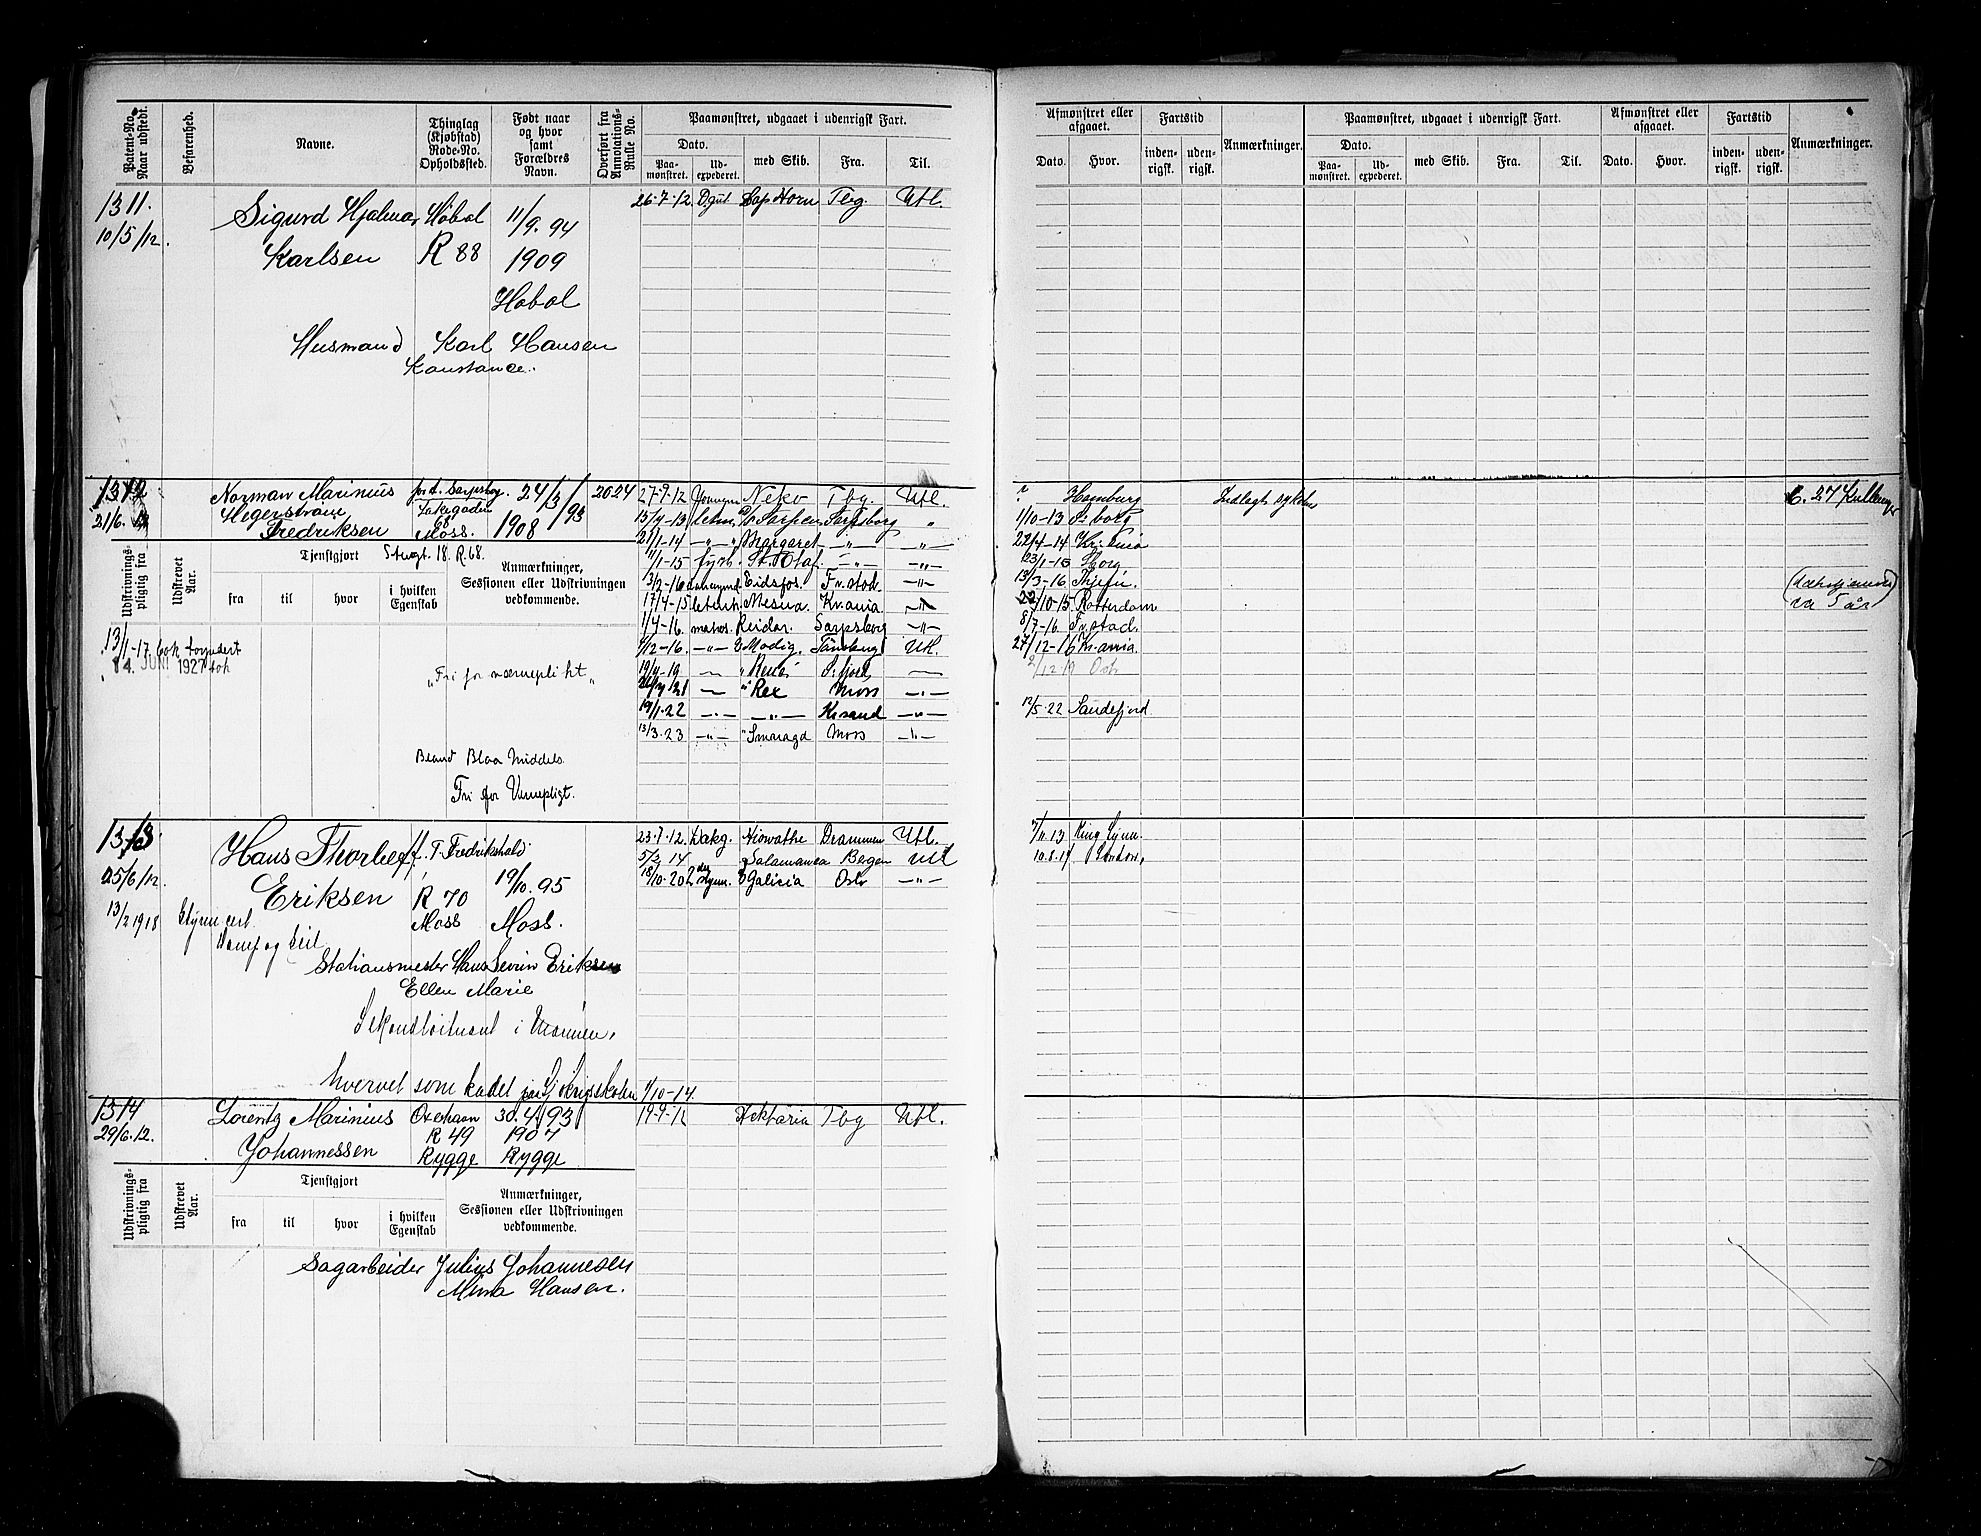 Patent-No. Naar udstedt.
Befarenhed.
Navne.
Thinglag (Kjøbstad) Rode-No. Opholdssted.
Født naar og hvor samt Forældres Navn.
Overført fra Annotations-Rulle No.
Paamønstret, udgaaet i udenrigsk Fart.
Dato.
Paa-mønstret.
Ud-expederet.
med Skib.
Fra.
Til.
Afmønstret eller afgaaet.
Dato.
Hvor.
Fartstid
inden-rigsk.
uden-rigsk.
Anmærkninger.
Paamønstret, udgaaet i udenrigsk Fart.
Dato.
Paa-mønstret.
Ud-expederet.
med Skib.
Fra.
Til.
Afmønstret eller afgaaet.
Dato.
Hvor.
Fartstid
inden-rigsk.
uden-rigsk.
Anmærkninger.
1311.
10/5/12.
Sigurd Hjalmar Høbøl 11/9. 94
Karlsen R 88 1909
Høbøl
Husmand Karl Hansen
Konstance.
26-7-12 Dgut Cap Horn Tbg. Utl.
1312
21/6.
Norman Marinius
Hegerstrøm
Fredriksen
Moss.
24/3/93
1908
2024
27-9-12 Neko Tbg. Utl.
? Hamburg Indlagt sykehus
13/4-13 Sarpen Sarpsborg "
1/10-13 S:borg
21/1-14 -"- Margaret -"- -"-
22/4-14 Kr:ania
1/1-15 fyrb. St. Olaf -"- -"-
23/1-15 Sborg
13/2-16 Eidsfos. Fr.stad -"-
13/3-16 Thjefn.
17/4-15 Mesna. Kr.ania -"-
22/10-15 Rotterdam
1/4-16. matros. Reidar. Sarpsborg -"-
8/7-16. Fr.stad.
1/12-16. -"- Modig. Tønsberg Utl.
27/12-16 Kr.ania.
19/4-19 — " Renö S:fjord —
2/12 19 Oslo
— " Rex Moss -"-
19/1.22 -"- -"- Krsand -"-
12/5.22 Sandefjord.
13/3.23 -"- "Smaragd Moss -"-
ca 5 år
Udskrivnings-pligtig fra
Udskrevet Aar.
Tjenstgjort
Stugt. 18. R.68.
fra
til
hvor
i hvilken Egenskab
Anmærkninger, Sessionen eller Udskrivningen vedkommende.
13/1-17. bok
4. JUNI 1927 bok
"Fri for værneplikt"
Blond Blaa Middels
Fri for Vernepligt.
1313
25/6/12.
Hans Thorleif
Eriksen
f. T. Fredrikshald
19/10. 95
R 70
Moss Moss.
13/2 1918 Styrm. cert.
Damp og Seil
Stationsmester Hans Severin Eriksen
Ellen Marie
Sekondløitnant i Marinen.
hvervet som kadet paa Sjøkrigsskolen 1/10-14.
23-7.12. Hiawatha Drammen Utl.
5/3 14 Salamanca Bergen Utl
18/10.20 2den styrm. Galicia Oslo -"-
7/11.13 King Lynn.
10.8.14 London.
1314
29/6.12.
Lorentz Marinius
Johannessen
R 49
Rygge
30.4/93
1907
Rygge
19-9-12 Tbg Utl.
Udskrivnings-pligtig fra
Udskrevet Aar.
Tjenstgjort
fra
til
hvor
i hvilken Egenskab
Anmærkninger, Sessionen eller Udskrivningen vedkommende.
Sagarbeider Julius Johannesen
Mina Hansen.